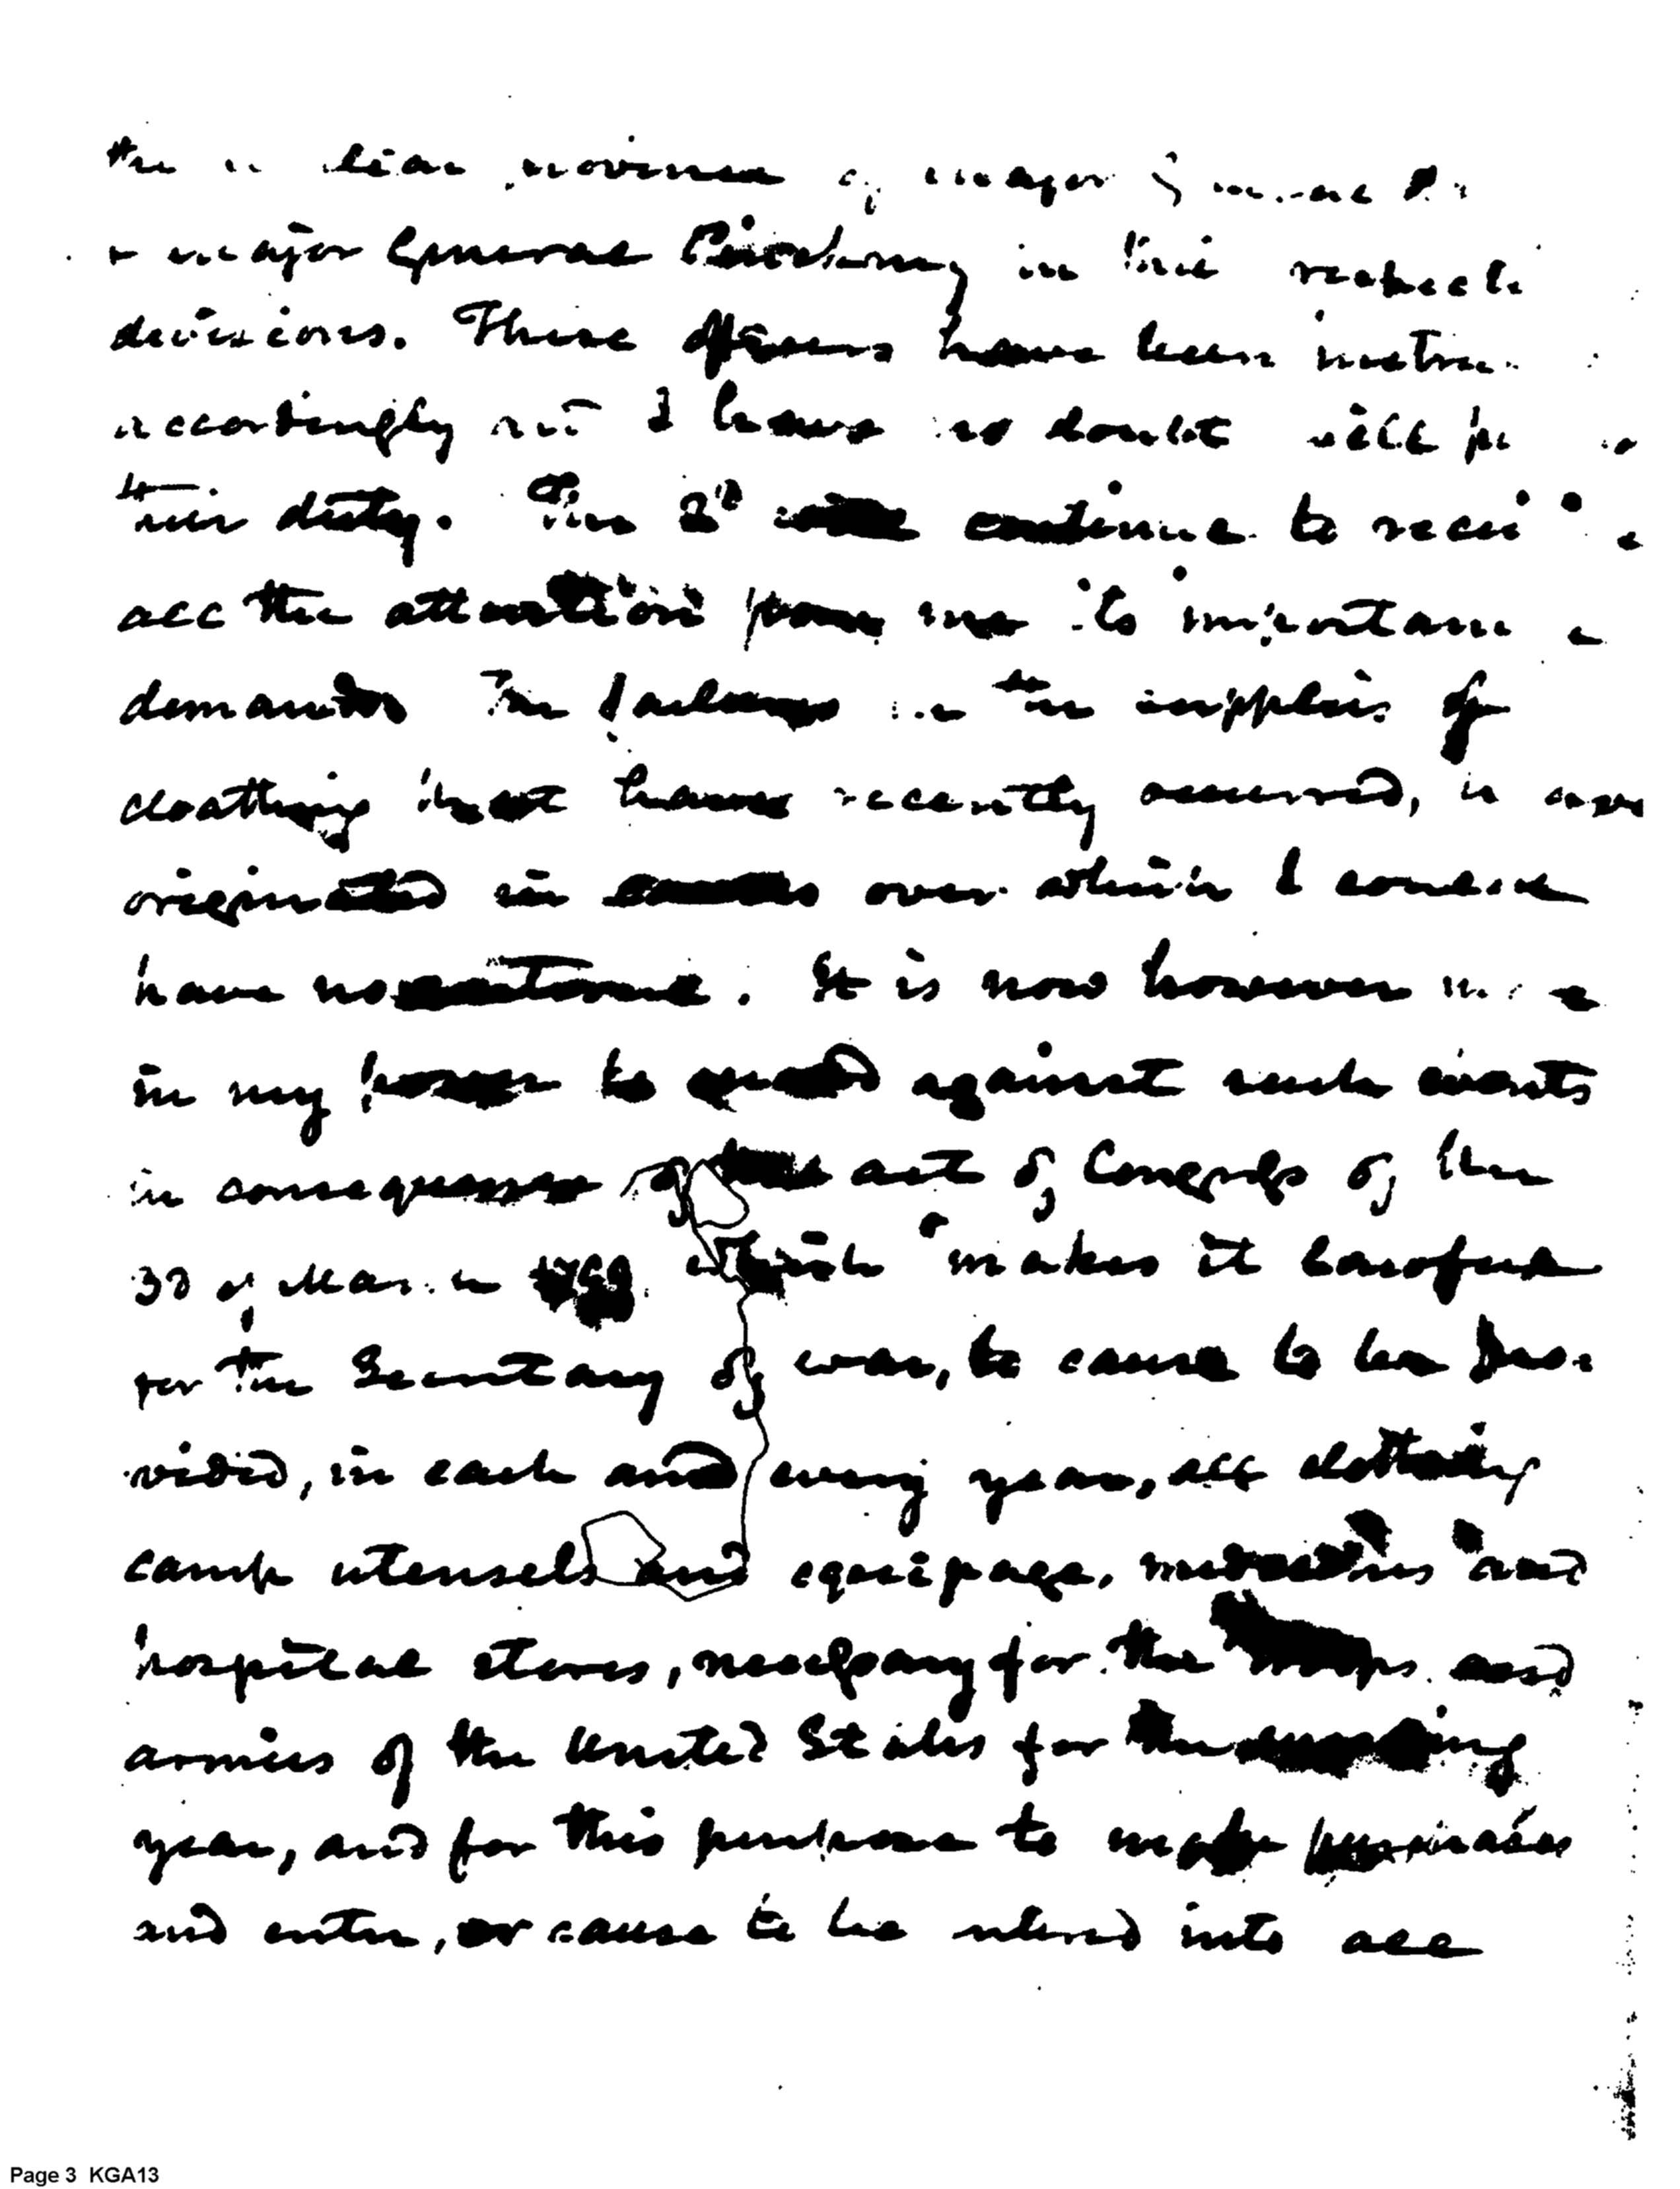 the peculiar province of major General
& major General Pinckney in their respective
divisions. These officers have been instructed
accordingly and I have no doubt will
their duty. The 2d will continue to receive
all the attention from me its importance
demands The failures in the supplies of
cloathing that have recently occurred,
originated in causes over which I could
have no controul. It is now however more
in my power to guard against such events
in consequence of the act of Congress of the
3d of March 1799. which "makes it lawful
for the Secretary of war, to cause to be pro-
vided, in each and every year, all clothing
camp utensels and equipage, medicines and
hospital stores, necessary for the troops and
armies of the United States for the ensuing
year, and for this purpose to make purchases
and enter, or cause to be entered into all
Page 3 KGA13